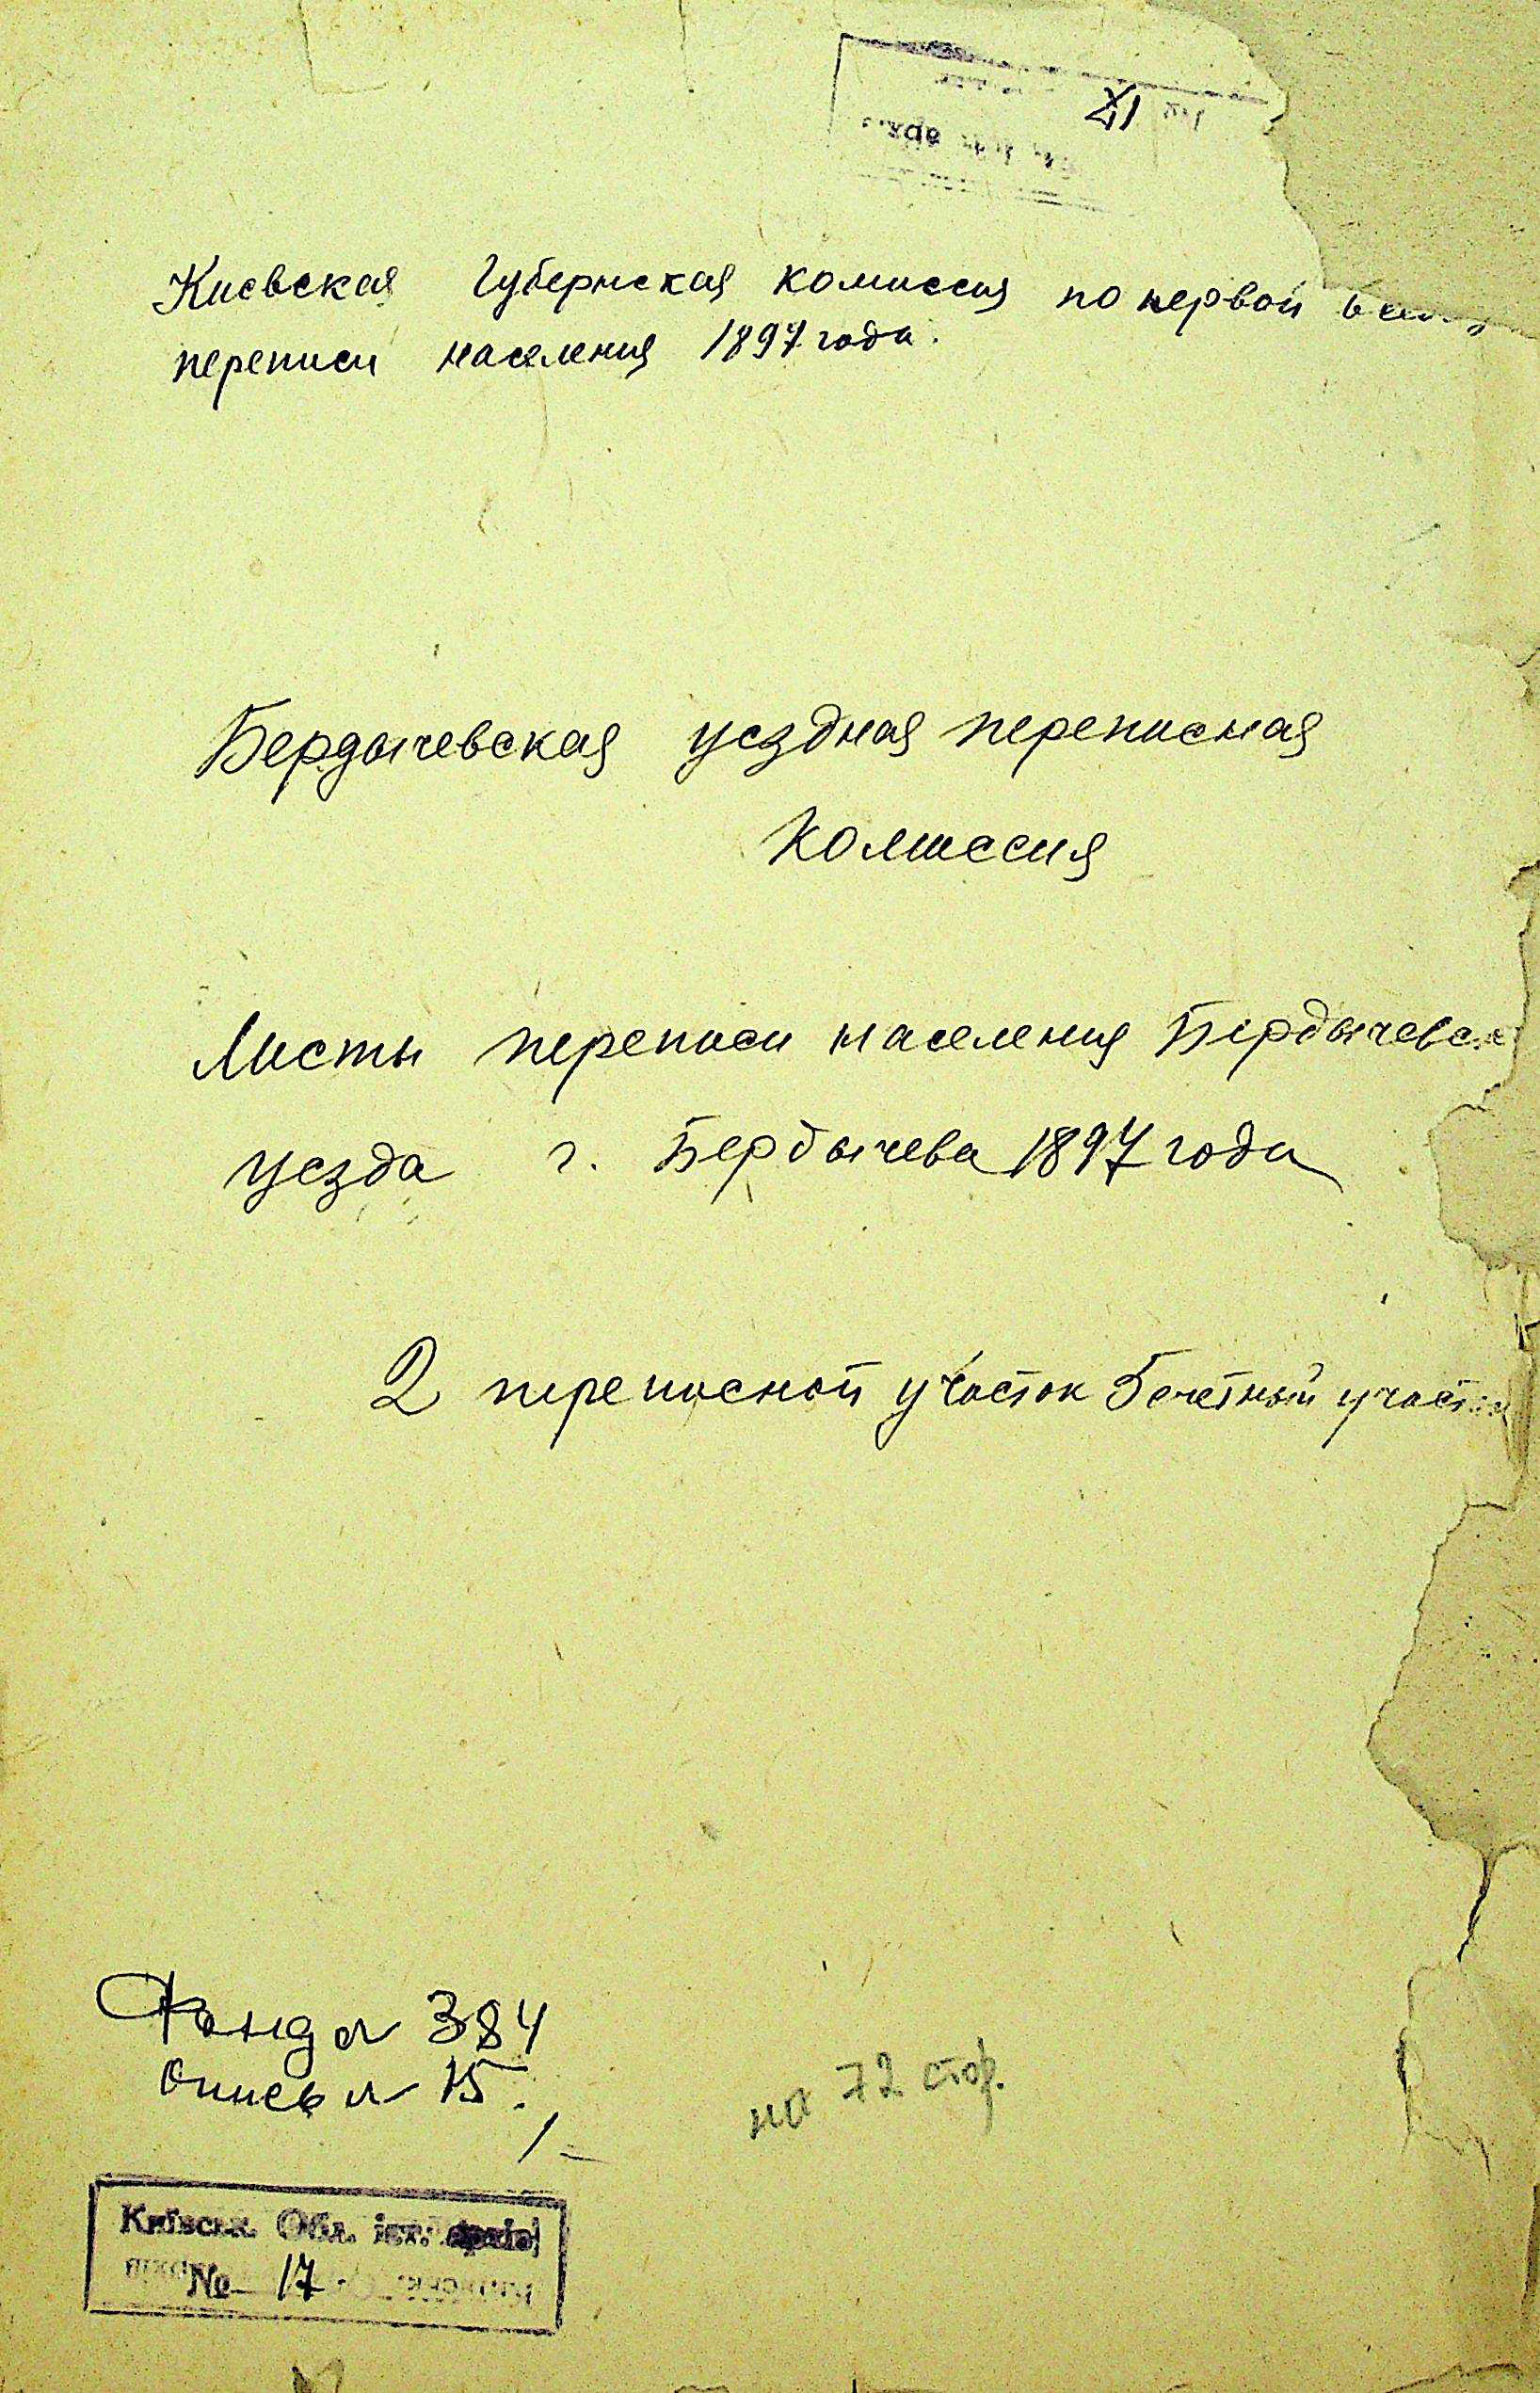 XI
Киевская Губернская комиссия по первой
переписи населения 1897 года.
Бердычевская уездная переписная
комиссия
Листы переписи населения Бердычевск
уезда г. Бердычева 1897 года
2 переписной участок 5 счетный участок
Фонд № 384
Опись № 15.
на 72 стор.
Київськ. Обл. іст. архів
№ 17